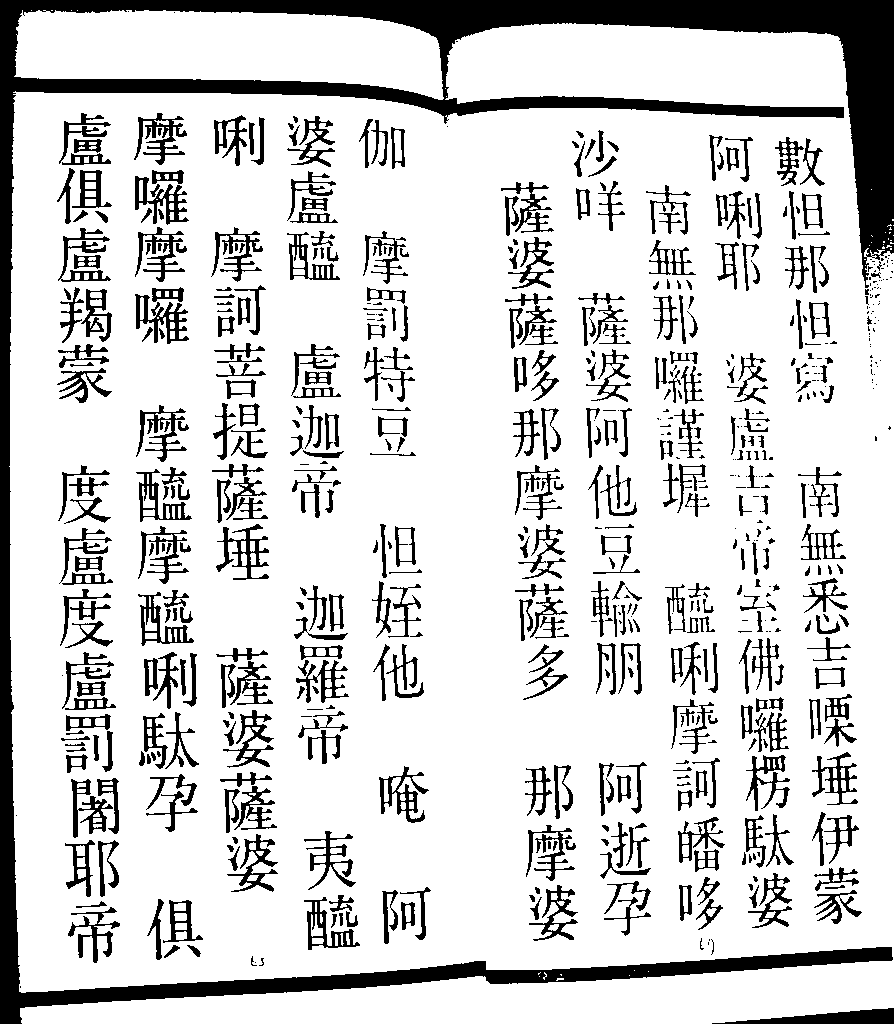 數怛那怛寫 南無悉吉嘌埵伊蒙
阿唎耶 婆盧吉帝室佛囉楞馱婆
南無那囉謹墀 醯唎摩訶皤哆
沙咩 薩婆阿他豆輸朋 阿逝孕
薩婆薩哆那摩婆薩多 那摩婆
伽 摩罰特豆 怛姪他 唵 阿
婆盧醯 盧迦帝 迦羅帝 夷醯
唎 摩訶菩提薩埵 薩婆薩婆
摩囉摩囉 摩醯摩醯唎馱孕 俱
盧俱盧羯蒙 度盧度盧罰闍耶帝